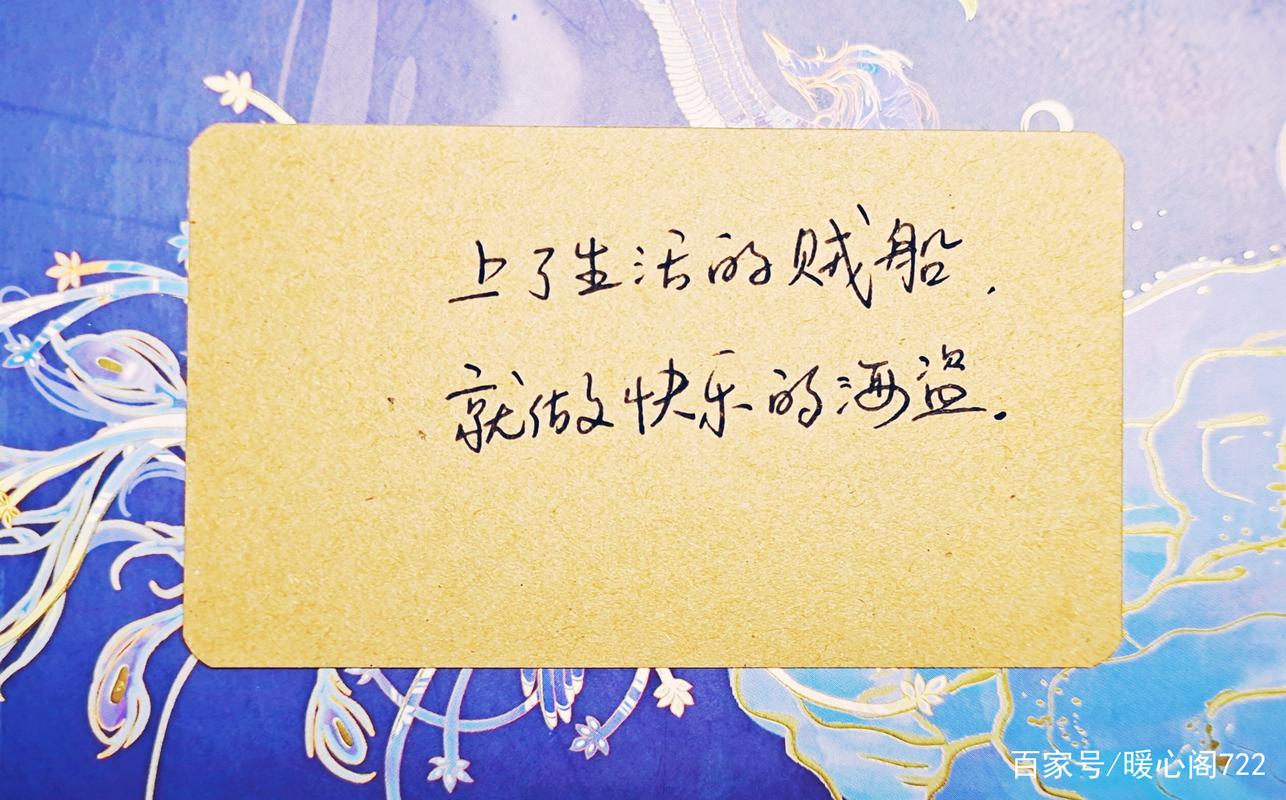 上了生活的贼船.
就做快乐的海盗.
百家号/暖心阁722